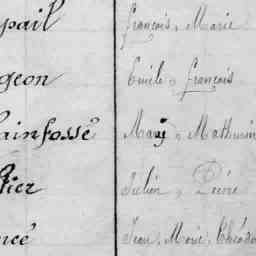 pail François, Marie
geon Emile, François
ainfosse Marij, Mathurin
tier Julien, Pierre
ncé Jean, Marie, Théodo